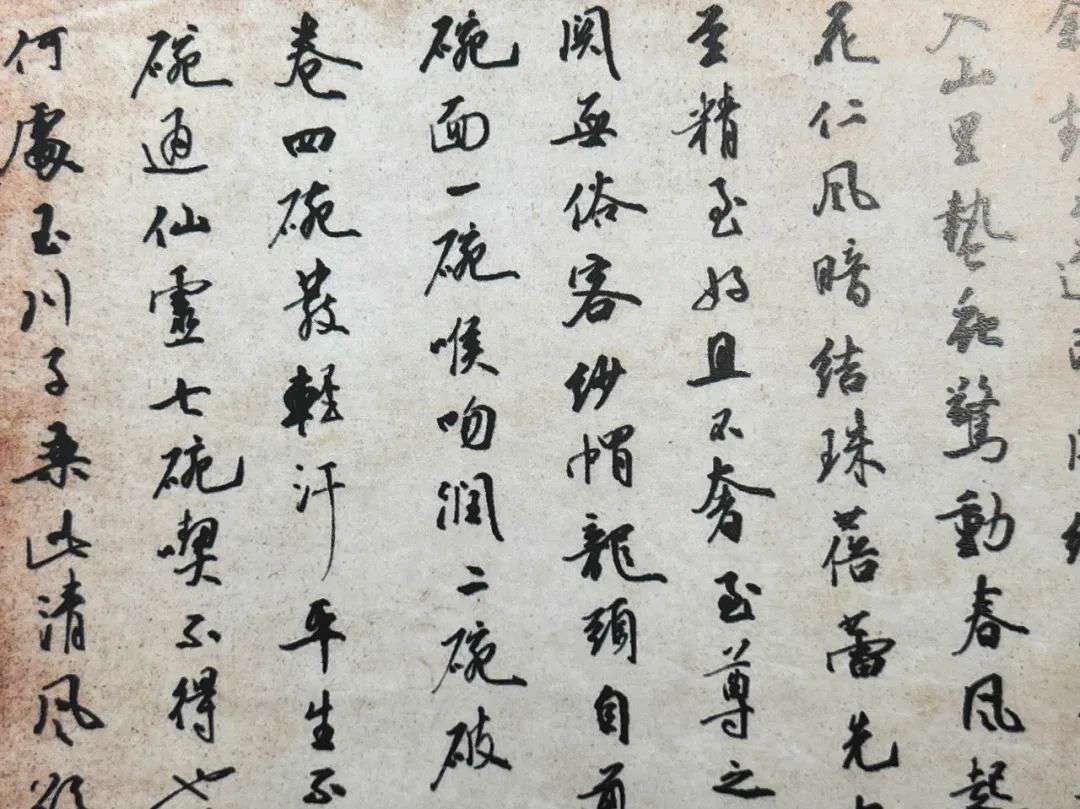 入山里蟄蟲驚動春風起
花仁風暗結珠蓓蕾先
至精至好且不奢至尊之
関無俗客紗帽龍頭自
碗面一碗喉吻潤二碗破
卷四碗發輕汗平生不
碗通仙靈七碗喫不得也
何處玉川子乘此清風欲